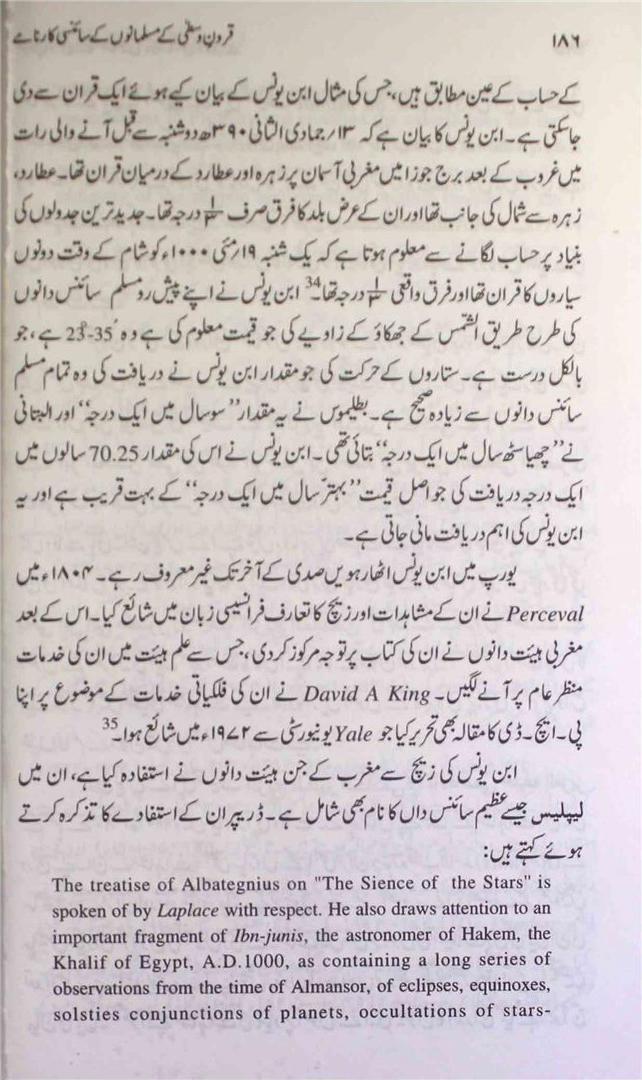 ۱۸۶ قرونِ وسطیٰ کے مسلمانوں کے سائنسی کارنامے
کے حساب کے عین مطابق ہیں، جس کی مثال ابن یونس کے بیان کیے ہوئے ایک قران سے دی
جاسکتی ہے۔ ابن یونس کا بیان ہے کہ ۱۳/ جمادی الثانی ۳۹۰ھ دوشنبہ سے قبل آنے والی رات
میں غروب کے بعد برج جوزا میں مغربی آسمان پر زہرہ اور عطارد کے درمیان قران تھا۔ عطارد،
زہرہ سے شمال کی جانب تھا اور ان کے عرض بلد کا فرق صرف درجہ تھا۔ جدید ترین جدولوں کی
بنیاد پر حساب لگانے سے معلوم ہوتا ہے کہ یک شنبہ ۱۹/ مئی ۱۰۰۰ء کو شام کے وقت دونوں
سیاروں کا قران تھا اور فرق واقعی درجہ تھا۔34 ابن یونس نے اپنے پیش رو مسلم سائنس دانوں
کی طرح طریق الشمس کے جھکاؤ کے زاویے کی جو قیمت معلوم کی ہے وہ 23°-35' ہے، جو
بالکل درست ہے۔ ستاروں کے حرکت کی جو مقدار ابن یونس نے دریافت کی وہ تمام مسلم
سائنس دانوں سے زیادہ صحیح ہے۔ بطلیموس نے یہ مقدار ”سو سال میں ایک درجہ“ اور البتانی
نے ”چھیاسٹھ سال میں ایک درجہ“ بتائی تھی۔ ابن یونس نے اس کی مقدار 70.25 سالوں میں
ایک درجہ دریافت کی جو اصل قیمت ”بہتر سال میں ایک درجہ“ کے بہت قریب ہے اور یہ
ابن یونس کی اہم دریافت مانی جاتی ہے۔
یورپ میں ابن یونس اٹھارہویں صدی کے آخر تک غیر معروف رہے۔ ۱۸۰۴ء میں
Perceval نے ان کے مشاہدات اور زیچ کا تعارف فرانسیسی زبان میں شائع کیا۔ اس کے بعد
مغربی ہیئت دانوں نے ان کی کتاب پر توجہ مرکوز کردی، جس سے علم ہیئت میں ان کی خدمات
منظر عام پر آنے لگیں۔ David A King نے ان کی فلکیاتی خدمات کے موضوع پر اپنا
پی۔ ایچ۔ ڈی کا مقالہ بھی تحریر کیا جو Yale یونیورسٹی سے ۱۹۷۲ء میں شائع ہوا۔35
ابن یونس کی زیچ سے مغرب کے جن ہیئت دانوں نے استفادہ کیا ہے، ان میں
لیپلیس جیسے عظیم سائنس داں کا نام بھی شامل ہے۔ ڈریپر ان کے استفادے کا تذکرہ کرتے
ہوئے کہتے ہیں:
The treatise of Albategnius on "The Sience of the Stars" is
spoken of by Laplace with respect. He also draws attention to an
important fragment of Ibn-junis, the astronomer of Hakem, the
Khalif of Egypt, A.D.1000, as containing a long series of
observations from the time of Almansor, of eclipses, equinoxes,
solsties conjunctions of planets, occultations of stars-